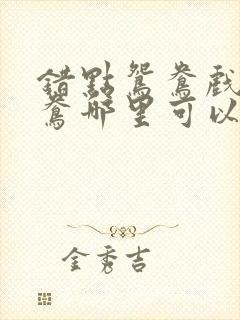 錯點鴛鴦戲
鴦哪里可以
金秀吉